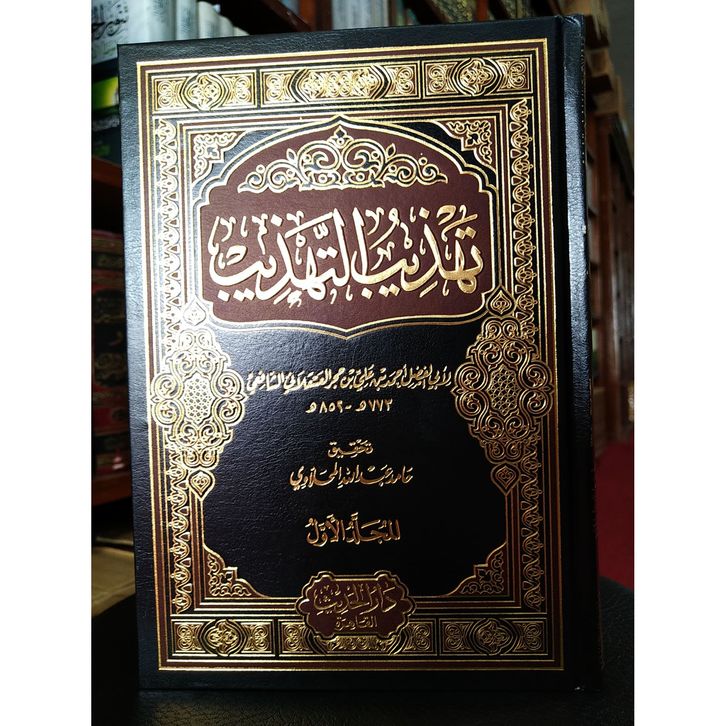 تَهْذِيبُ التَّهْذِيبِ
لأبي الفضل أحمد بن علي بن حجر العسقلاني الشافعي
٧٧٣هـ - ٨٥٢هـ
تحقيق
حامد عبد الله المحلاوي
المُجَلَّدُ الأَوَّلُ
دار الحديث
القاهرة